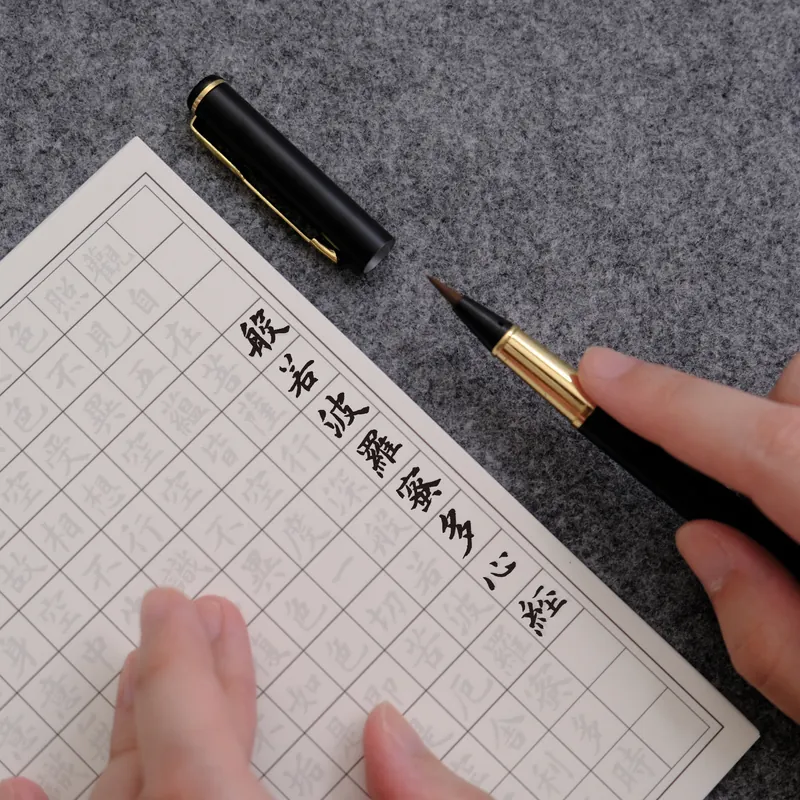 般若波羅蜜多心經
觀自在菩薩行深般若波羅蜜多時
照見五蘊皆空度一切苦厄舍利
色不異空空不異色色即是
色受想行識復如是
空相不不垢